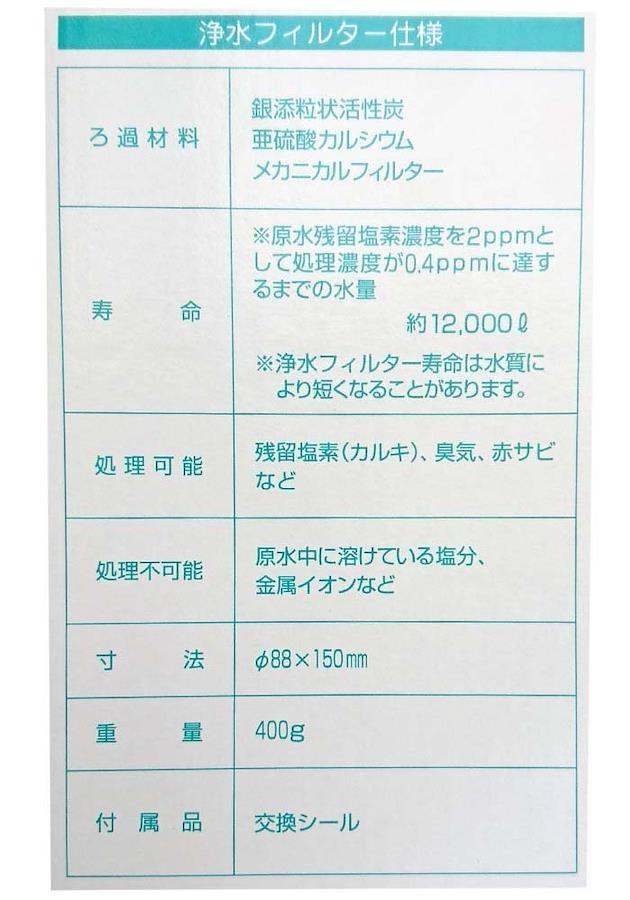 浄水フィルター仕様
ろ過材料
銀添粒状活性炭
亜硫酸カルシウム
メカニカルフィルター
寿命
※原水残留塩素濃度を2ppmと
して処理濃度が0.4ppmに達す
るまでの水量
約12,000ℓ
※浄水フィルター寿命は水質に
より短くなることがあります。
処理可能
残留塩素(カルキ)、臭気、赤サビ
など
処理不可能
原水中に溶けている塩分、
金属イオンなど
寸法
φ88×150㎜
重量
400g
付属品
交換シール